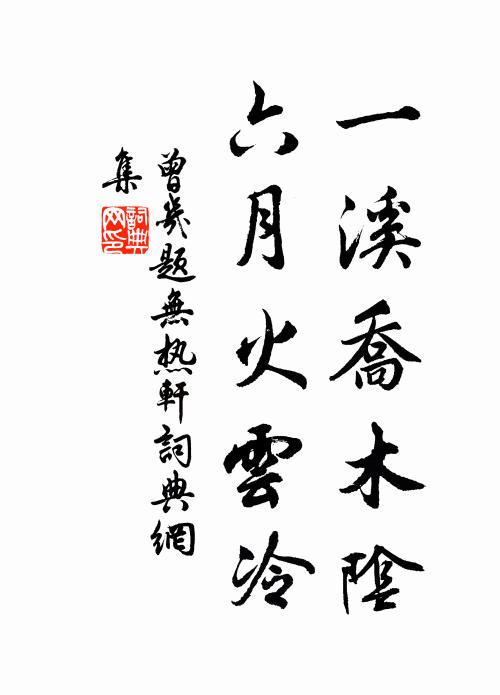 一溪喬木陰
六月火雲冷
曾幾題無热軒詞典網
集
詞典網印